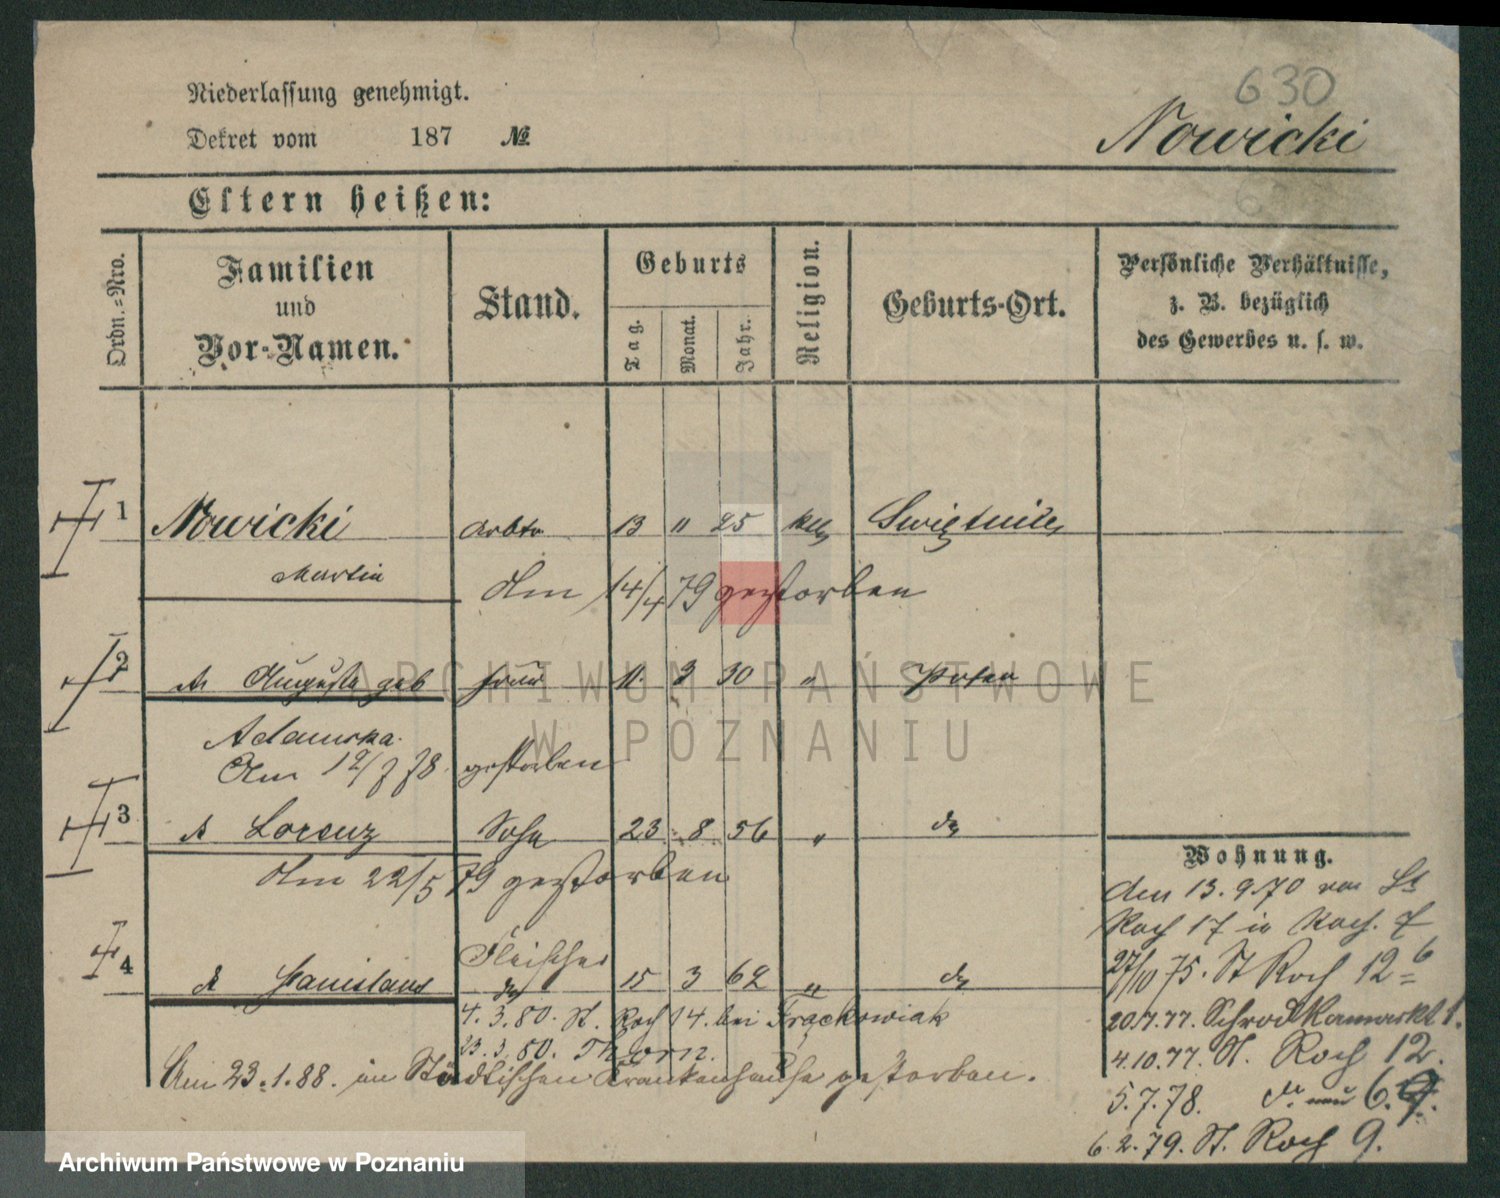 630
Niederlassung genehmigt.
Dekret vom 187 №
Nowicki
Eltern heißen:
Ordn.-Nro.
Familien
und
Vor-Namen.
Stand.
Geburts
Tag.
Monat.
Jahr.
Religion.
Geburts-Ort.
Persönliche Verhältnisse,
z. B. bezüglich
des Gewerbes u. s. w.
1 Nowicki Arbtr 13 " 25 kth
Martin
Am 14/4 79 gestorben
2 Auguste geb Frau 11. 3 30 " Posen
Adamska
Am 12/7 78. gestorben
3 Lorenz Sohn 23. 8 56 " do
Am 22/5 79 gestorben
Fleischer
4 Stanislaus do 15 3 62 " do
4.3.80. St. Roch 14. bei Frąckowiak
23.3.80. Thorn.
Am 23.1.88. im Städtischen Krankenhause gestorben.
Wohnung.
Den 13.9.70 von St
Roch 17 in Roch. 7
27/10 75. St Roch 12
20.7.77. Schrodkamarkt 1.
4.10.77. St. Roch 12.
5.7.78. do neu 6.
6.2.79. St. Roch 9.
ARCHIWUM PAŃSTWOWE
W POZNANIU
Archiwum Państwowe w Poznaniu